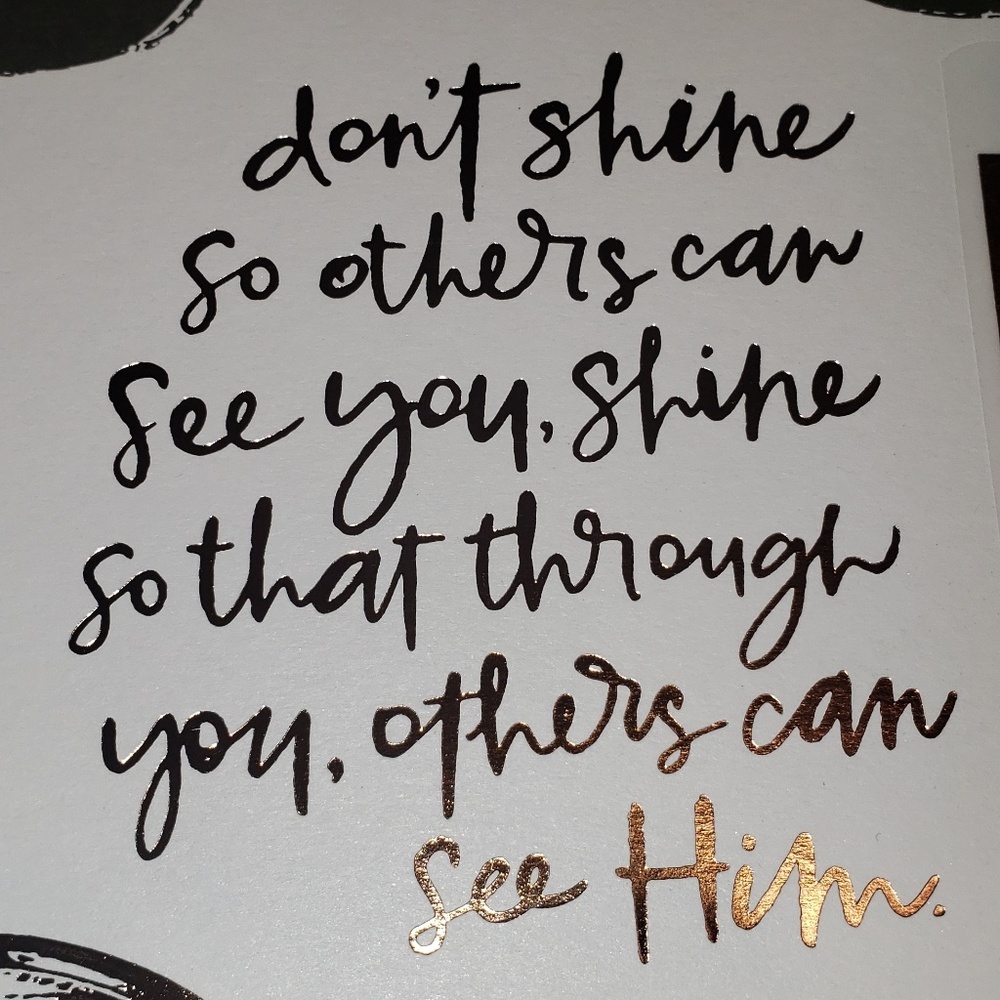 don't shine
so others can
see you, shine
so that through
you, others can
see Him.